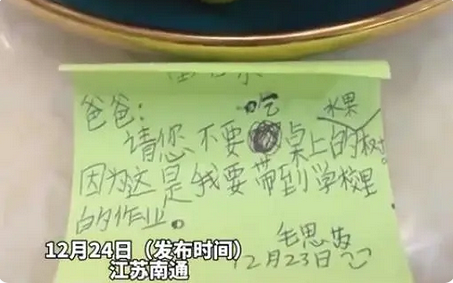 爸爸：
请您不要吃桌上的水果树。
因为这是我要带到学校里
的作业。
毛思
12月23日
12月24日（发布时间）
江苏南通